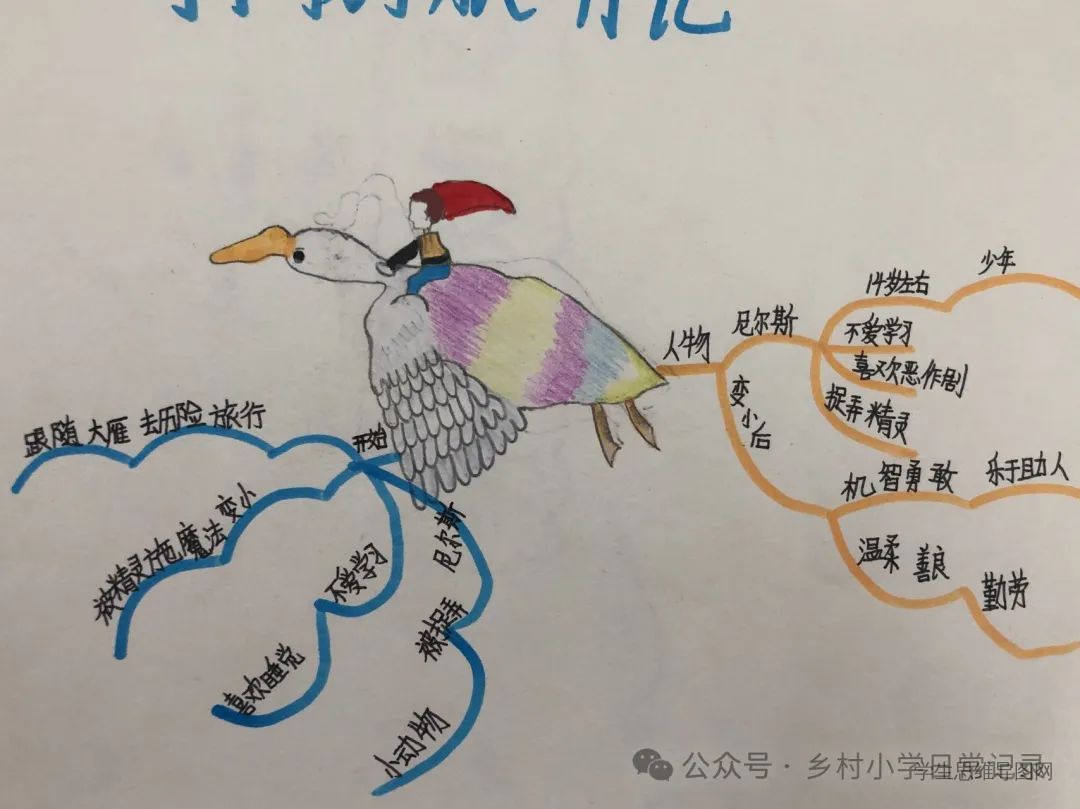 记
人物
尼尔斯
14岁左右
少年
不爱学习
喜欢恶作剧
捉弄精灵
变小后
机智勇敢
乐于助人
温柔 善良
勤劳
开始
跟随 大雁 去历险 旅行
被精灵施魔法 变小
不爱学习
喜欢睡觉
尼尔斯
被捉弄
小动物
公众号·乡村小学日常记录
学生思维导图网